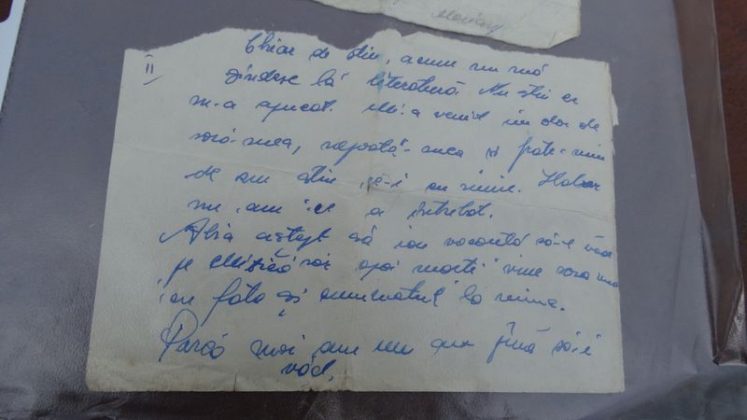 II
Chiar de știu, acum nu mă
gîndesc la literatură. Nu știu ce
m-a apucat. Mi-a venit un dor de
soră-mea, nepoată-mea și frate-miu
de am știu să-i cu mine. Habar
nu am ce a întrebat.
Abia aștept să iau vacanță să-l văd
pe apoi vine sora mea
cu fata și cumnatul la mine.
Parcă mai am un an pînă să-i
văd.